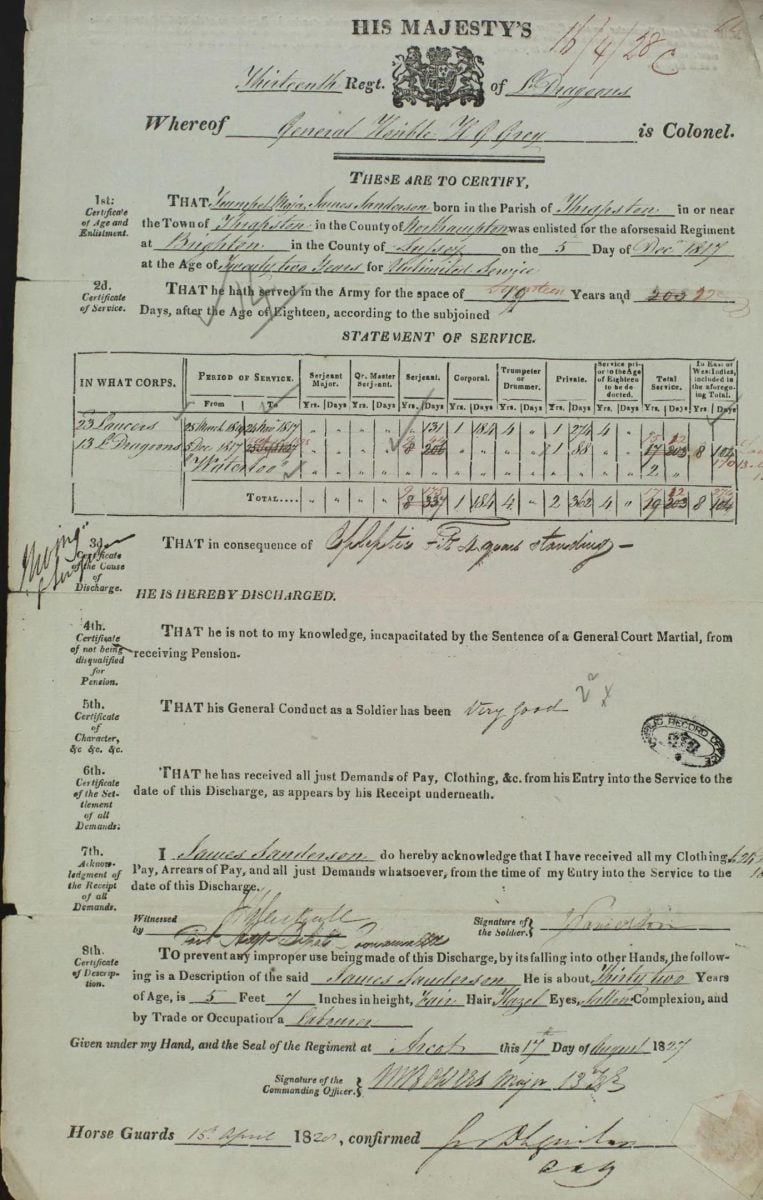 HIS MAJESTY'S
15/4/28
Thirteenth Regt. of Lt Dragoons
Whereof General Honble H G Grey is Colonel.
THESE ARE TO CERTIFY,
1st: Certificate of Age and Enlistment.
THAT Trumpet Major James Sanderson born in the Parish of Thrapston in or near
the Town of Thrapston in the County of Northampton was enlisted for the aforsesaid Regiment
at Brighton in the County of Sussex on the 5 Day of Decr 1817
at the Age of Twenty two Years for Unlimited Service
2d. Certificate of Service.
THAT he hath served in the Army for the space of 19 Years and 203
Days, after the Age of Eighteen, according to the subjoined
STATEMENT OF SERVICE.
IN WHAT CORPS. PERIOD OF SERVICE. Serjeant Major. Qr. Master Serjeant. Serjeant. Corporal. Trumpeter or Drummer. Private. Service prior to the Age of Eighteen to be deducted. Total Service. In East or West Indies, included in the aforegoing Total.
From To Yrs. Days Yrs. Days Yrs. Days Yrs. Days Yrs. Days Yrs. Days Yrs. Days Yrs. Days Yrs. Days
23 Lancers 1817 " " " " " 131 1 184 4 " 1 274 4 "
13 Lt Dragoons 5 Dec 1817 " " " " 8 206 " " " " 1 88 " " 17 203 8 104
"Waterloo" " " " " " " " " " " " " " " 2 " " "
TOTAL " " " " 8 337 1 184 4 " 2 362 4 " 19 203 8 104
3d. Certificate of the Cause of Discharge.
THAT in consequence of Epileptic Fits years standing
HE IS HEREBY DISCHARGED.
4th. Certificate of not being disqualified for Pension.
THAT he is not to my knowledge, incapacitated by the Sentence of a General Court Martial, from
receiving Pension.
5th. Certificate of Character, &c &c. &c.
THAT his General Conduct as a Soldier has been Very good
PUBLIC RECORD OFFICE
6th. Certificate of the Settlement of all Demands.
THAT he has received all just Demands of Pay, Clothing, &c. from his Entry into the Service to the
date of this Discharge, as appears by his Receipt underneath.
7th. Acknowledgment of the Receipt of all Demands.
I James Sanderson do hereby acknowledge that I have received all my Clothing
Pay, Arrears of Pay, and all just Demands whatsoever, from the time of my Entry into the Service to the
date of this Discharge.
Witnessed by
Signature of the Soldier. J Sanderson
8th. Certificate of Description.
TO prevent any improper use being made of this Discharge, by its falling into other Hands, the follow-
ing is a Description of the said James Sanderson He is about Thirty two Years
of Age, is 5 Feet 7 Inches in height, Fair Hair, Hazel Eyes, Sallow Complexion, and
by Trade or Occupation a Labourer
Given under my Hand, and the Seal of the Regiment at Arcot this 17th Day of August 1827
Signature of the Commanding Officer. Major 13
Horse Guards 15th April 1828, confirmed